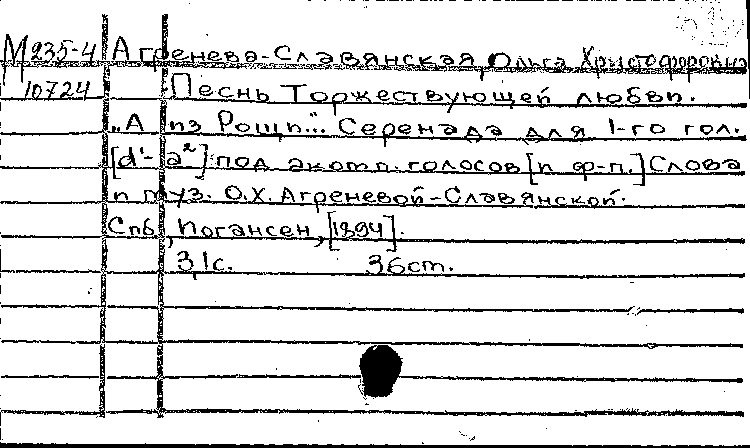 М 235-4 Агренева-Славянская, Ольга Христофоровна
10724 Песнь Торжествующей любви.
„А из Рощи..." Серенада для 1-го гол.
[d'-a²] под акомп. голосов [и ф-п.] Слова
и муз. О.Х. Агреневой-Славянской.
Спб, Иогансен, [1894].
3,1с. 36ст.